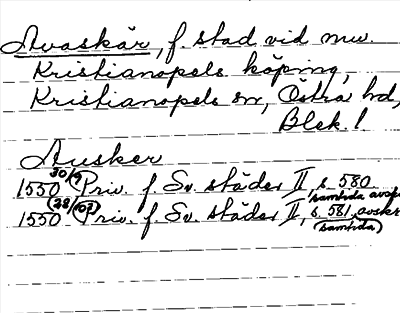 Avaskär, f. stad vid nuv.
Kristianopels köping,
Kristianopels sn, Östra hd,
Blek. l.
Ausker
1550 30/9 Priv. f. Sv. städer II, s. 580.
samtida avskr
1550 (28/10?) Priv. f. Sv. städer II, s. 581, avskr
(samtida)